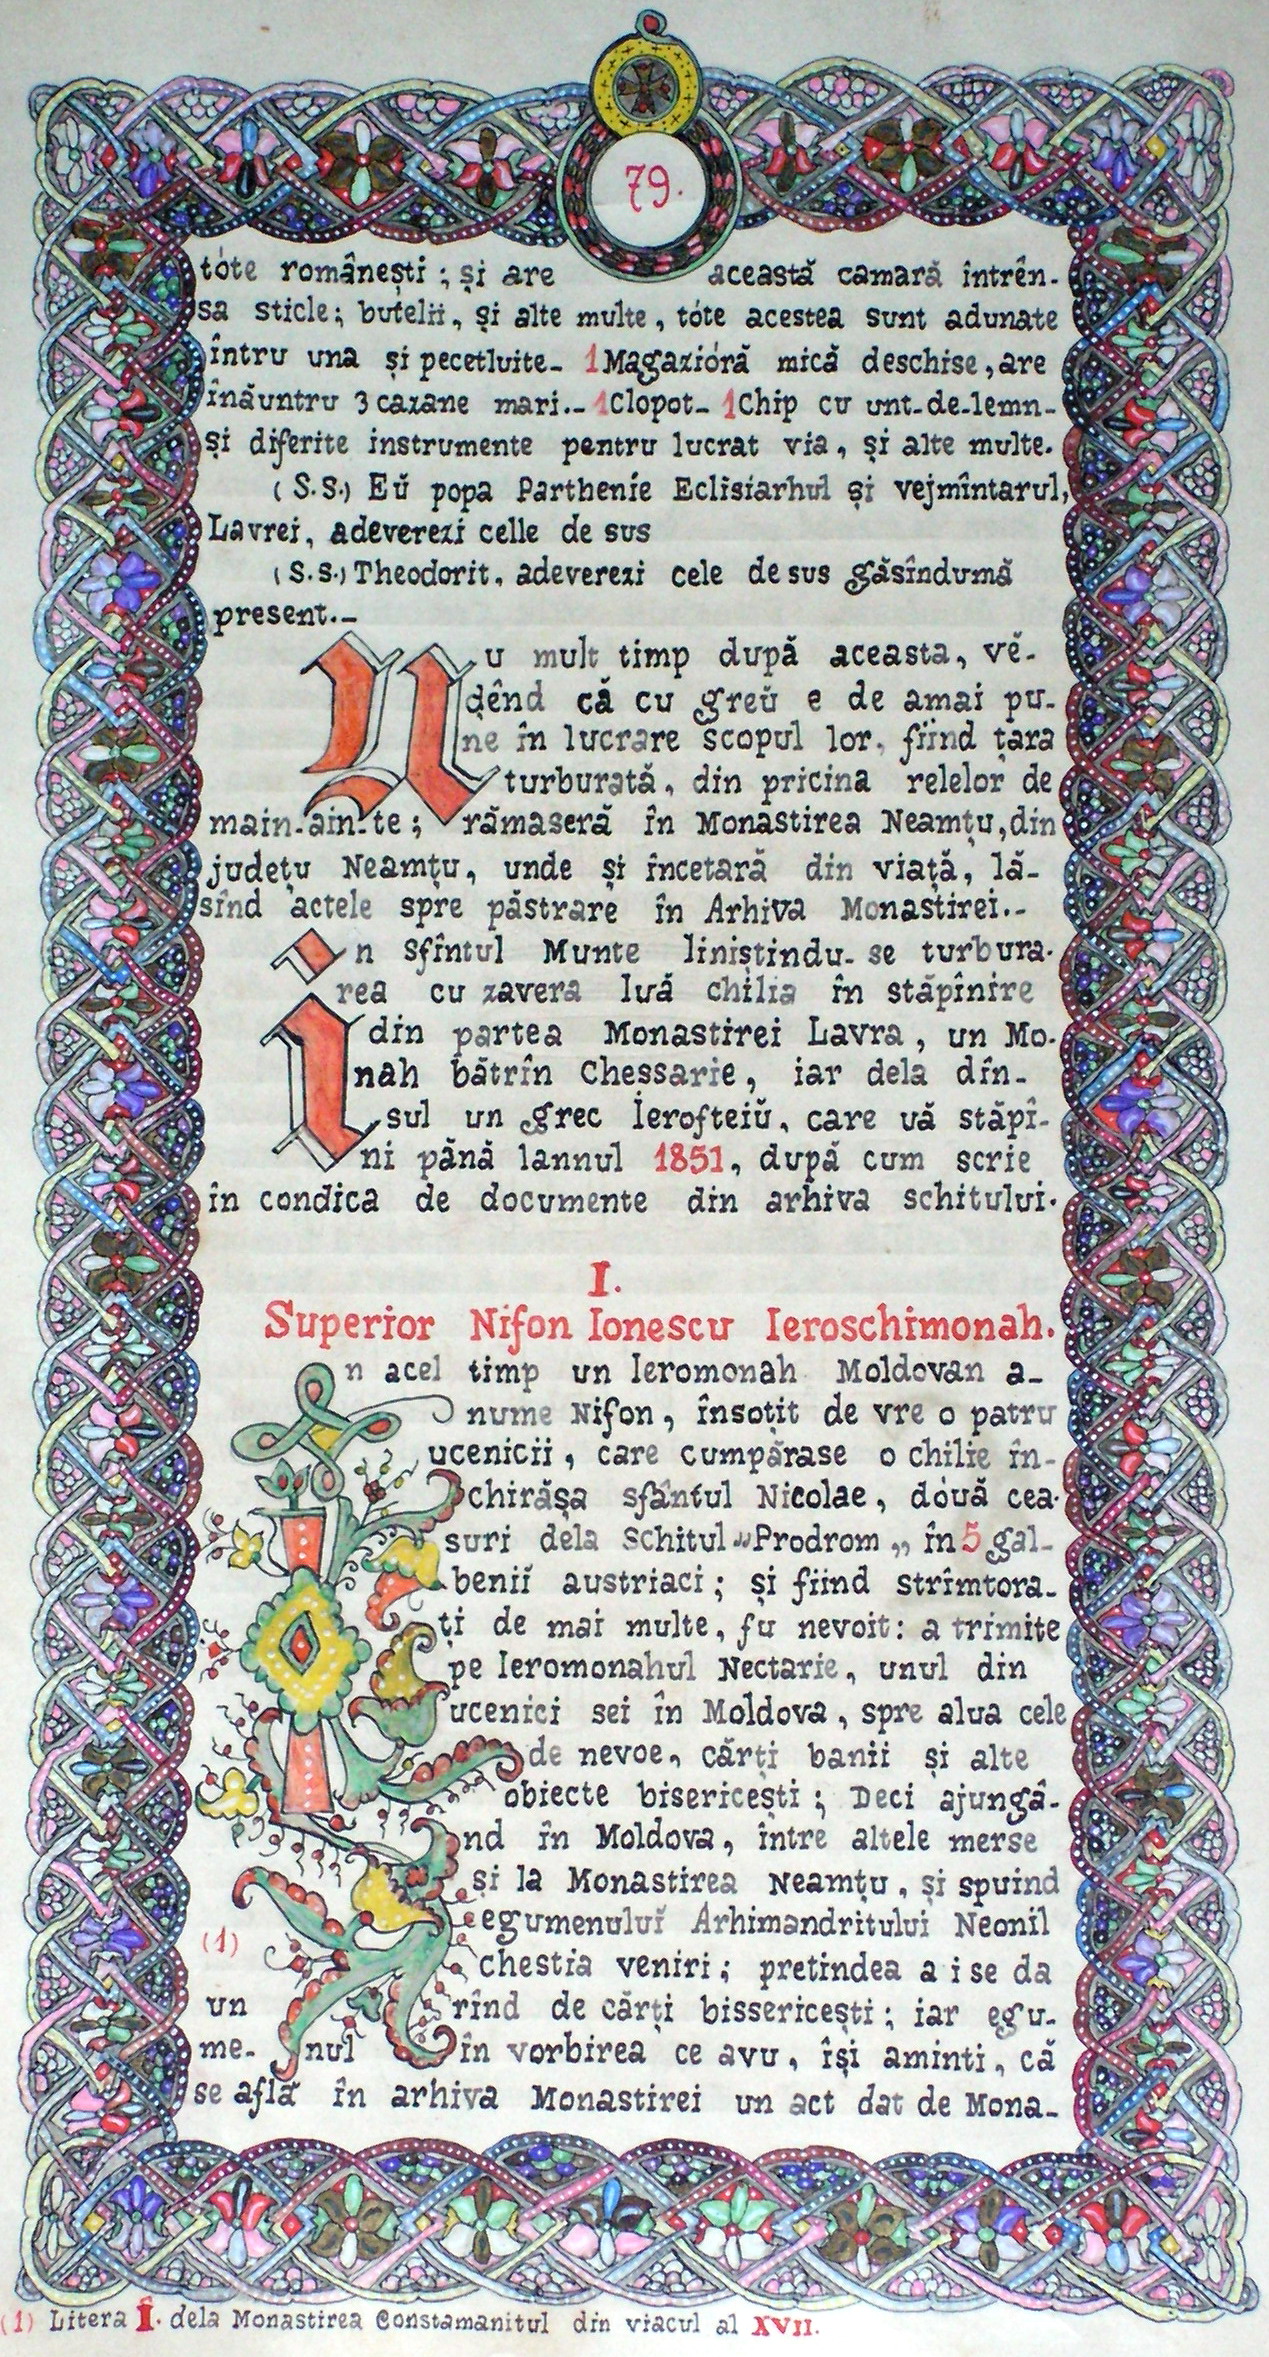 79.
tóte românești ; și are această camară întrên-
sa sticle; butelii, și alte multe, tóte acestea sunt adunate
întru una și pecetluite- 1 Magazióră mică deschise, are
înăuntru 3 cazane mari.- 1 Clopot- 1 Chip cu unt-de-lemn-
și diferite instrumente pentru lucrat via, și alte multe.
(S.S.) Eŭ popa Parthenie Eclisiarhul și vejmîntarul,
Lavrei, adeverezi celle de sus
(S.S.) Theodorit, adeverezi cele de sus găsîndumă
present.-
Nu mult timp după aceasta, vĕ-
dênd că cu greŭ e de amai pu-
ne în lucrare scopul lor, fiind țara
turburată, din pricina relelor de
main-ain-te; rămaseră în Monastirea Neamțu, din
județu Neamțu, unde și încetară din viață, lă-
sînd actele spre păstrare în Arhiva Monastirei.-
in sfîntul Munte liniștindu-se turbura-
rea cu zavera luă chilia în stăpînire
din partea Monastirei Lavra, un Mo-
nah bătrîn Chessarie, iar dela dîn-
sul un grec Ierofteiŭ, care uă stăpî-
ni pănă lannul 1851, după cum scrie
în condica de documente din arhiva schitului.
I.
Superior Nifon Ionescu Ieroschimonah.
În acel timp un Ieromonah Moldovan a-
nume Nifon, însoțit de vre o patru
ucenicii, care cumpărase o chilie în-
chirășa sfântul Nicolae, două cea-
suri dela Schitul „Prodrom„ în 5 gal-
beniĭ austriaci; și fiind strîmtora-
ți de mai multe, fu nevoit: a trimite
pe Ieromonahul Nectarie, unul din
ucenici sei în Moldova, spre alua cele
de nevoe, cărți banii și alte
obiecte bisericești; Deci ajungâ-
nd în Moldova, între altele merse
și la Monastirea Neamțu, și spuind
egumenuluĭ Arhimandritului Neonil
(1) chestia veniri; pretindea a i se da
un rînd de cărți bissericești; iar egu-
me-nul în vorbirea ce avu, își aminti, că
se află în arhiva Monastirei un act dat de Mona-
(1) Litera Î. dela Monastirea Constamanitul din viacul al XVII.